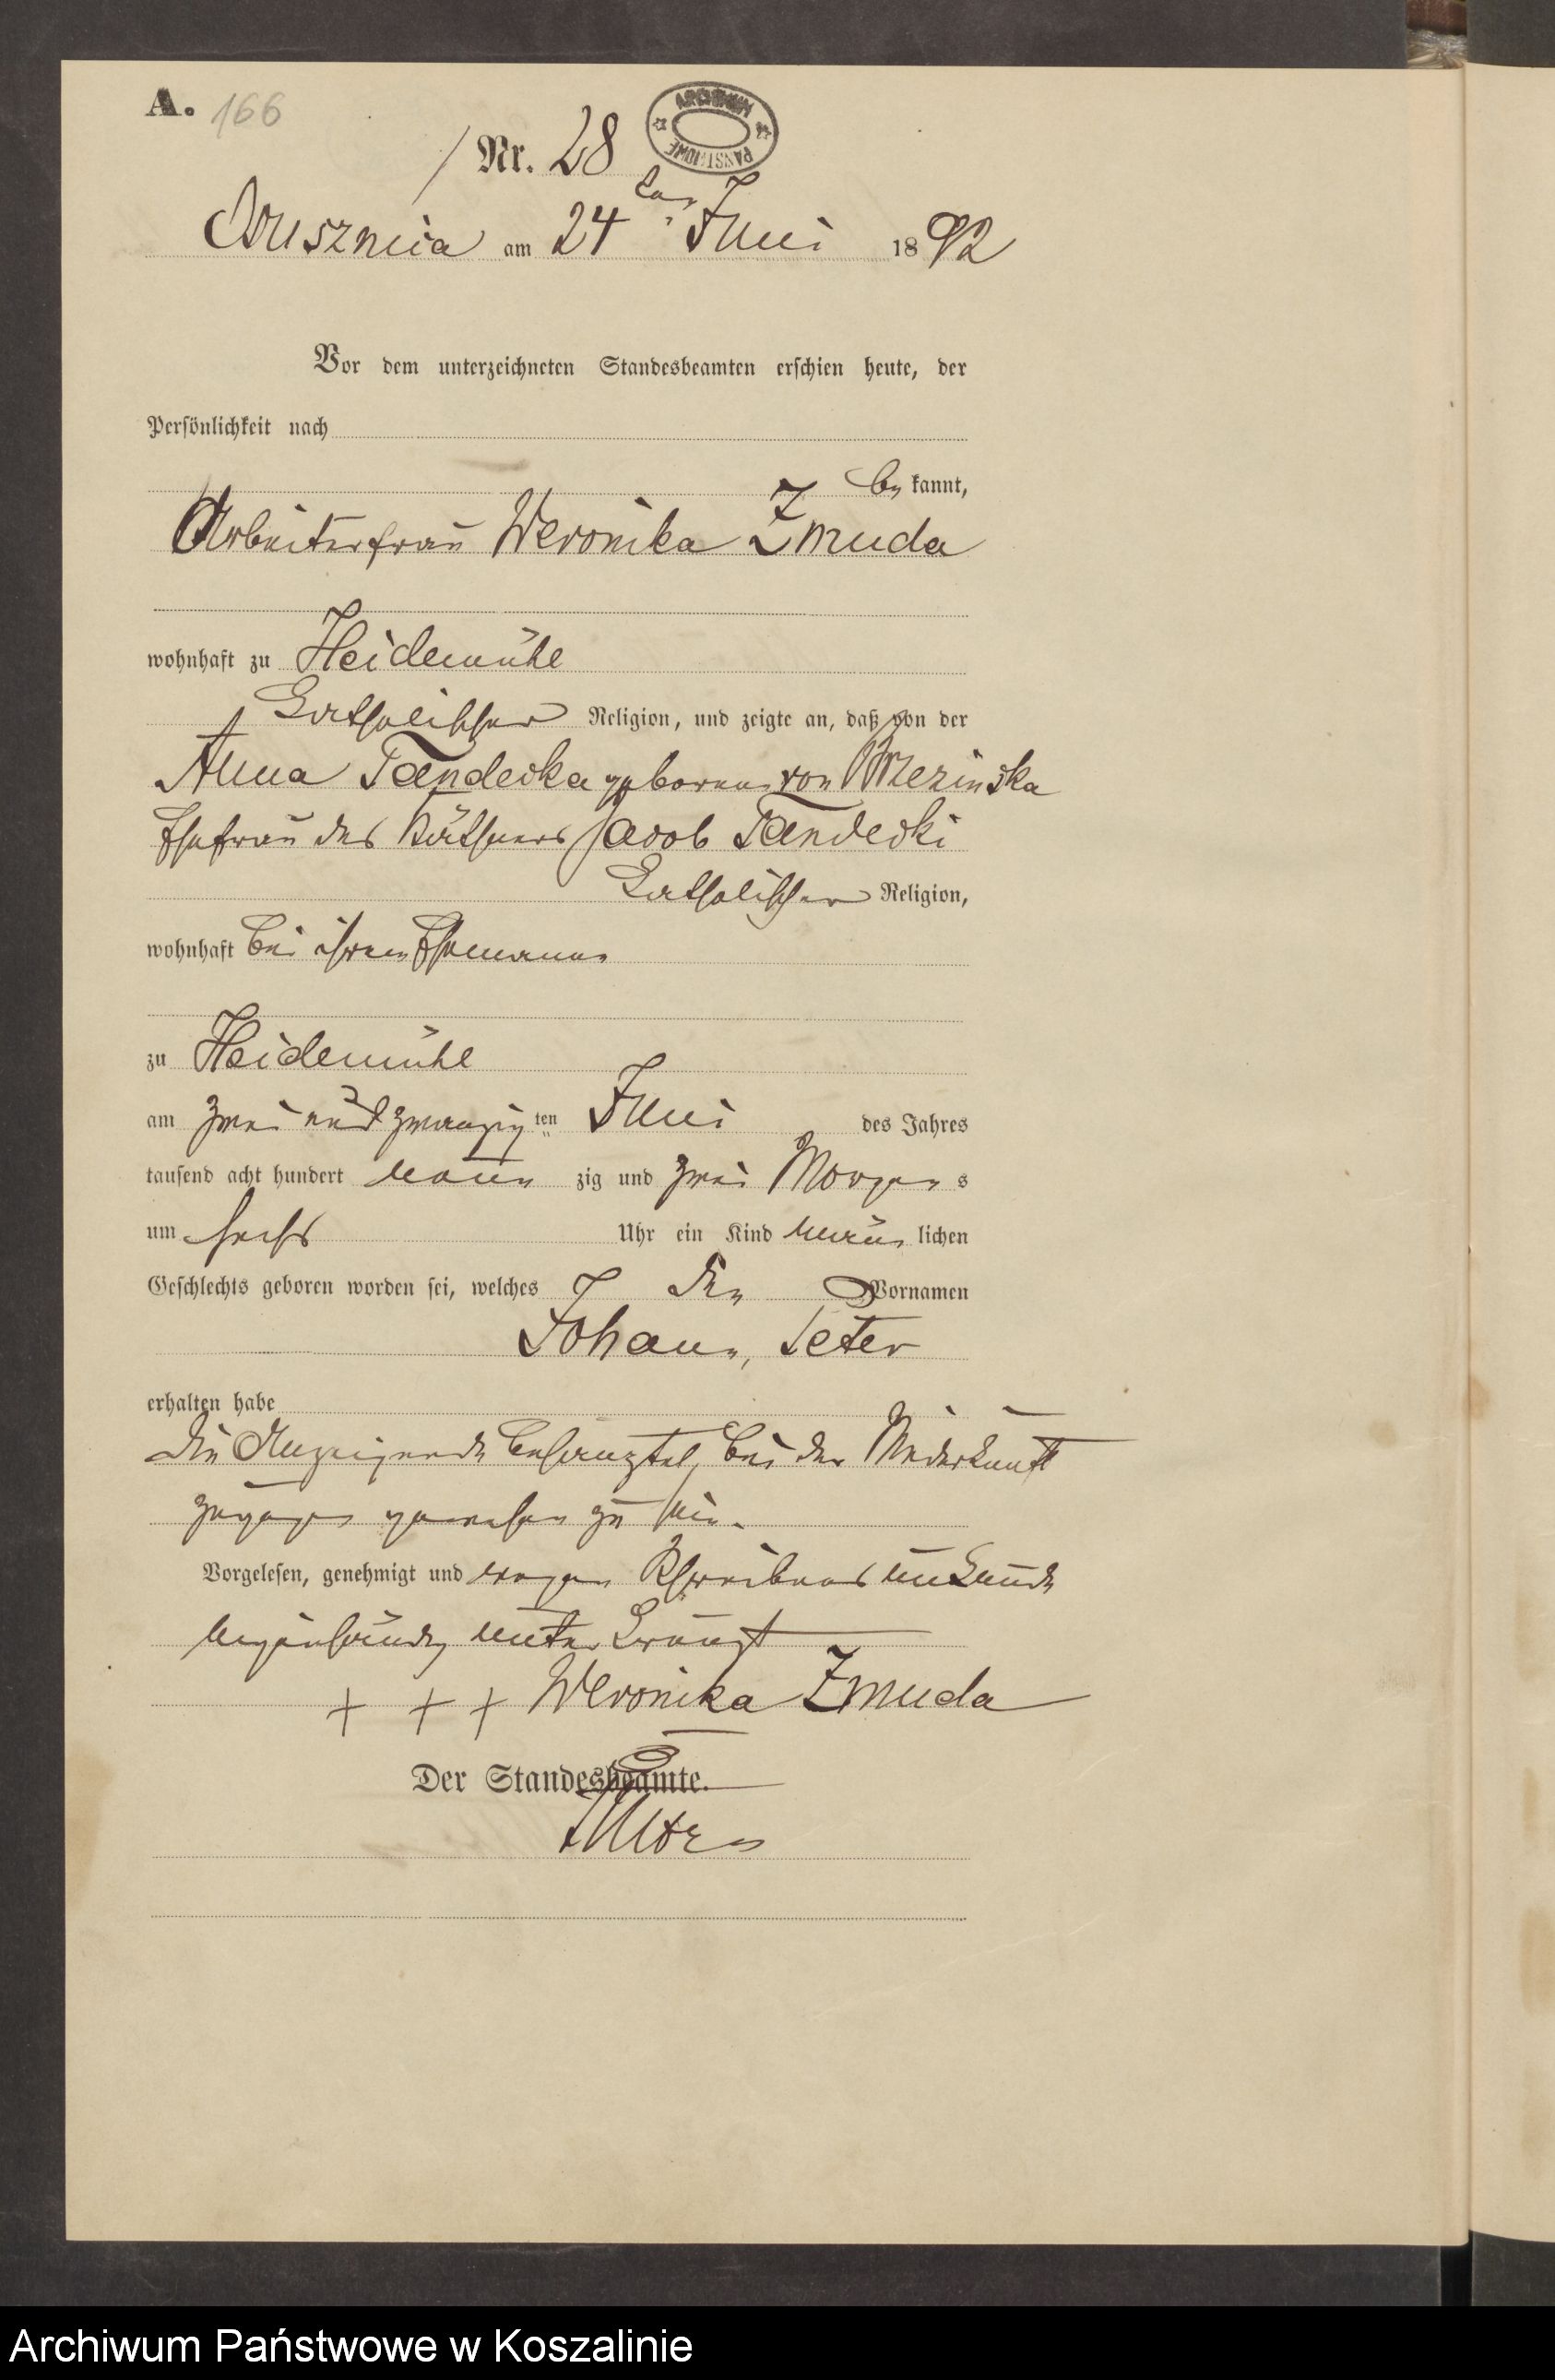 A. 166
Nr. 28
ARCHIWUM PAŃSTWOWE
am 24 ten Juni 1892
Vor dem unterzeichneten Standesbeamten erschien heute, der
Persönlichkeit nach
be kannt,
Arbeiterfrau Weronika Zmuda
wohnhaft zu Heidemühl
Katholischer Religion, und zeigte an, daß von der
Anna Tandecka geborene von
Ehefrau des Käthners Jacob Tandecki
Katholischer Religion,
wohnhaft bei ihrem Ehemanne
zu Heidemühl
am zwei und zwanzig ten Juni des Jahres
tausend acht hundert neun zig und zwei Morgen s
um sechs Uhr ein Kind männ lichen
Geschlechts geboren worden sei, welches die Vornamen
Johann, Peter
erhalten habe
Die Anzeigende bei der Niederkunft
zugegen gewesen zu sein.
Vorgelesen, genehmigt und wegen Schreibens unkunde
unter kreuzt
+ + + Weronika Zmuda
Der Standesbeamte.
Archiwum Państwowe w Koszalinie